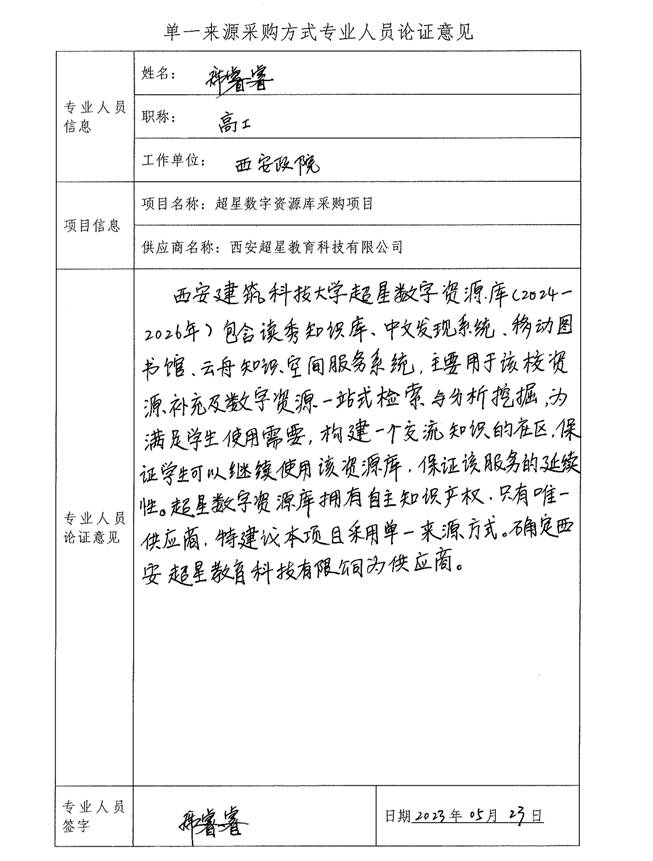 单一来源采购方式专业人员论证意见
专业人员
信息
姓名：睿睿
职称：高工
工作单位：西安政院
项目信息
项目名称：超星数字资源库采购项目
供应商名称：西安超星教育科技有限公司
专业人员
论证意见
西安建筑科技大学超星数字资源库（2024-
2026年）包含读秀知识库、中文发现系统、移动图
书馆、云舟知识空间服务系统，主要用于该校资
源补充及数字资源一站式检索与分析挖掘，为
满足学生使用需要，构建一个交流知识的社区，保
证学生可以继续使用该资源库，保证该服务的延续
性。超星数字资源库拥有自主知识产权，只有唯一
供应商，特建议本项目采用单一来源方式。确定西
安超星教育科技有限公司为供应商。
专业人员
签字
睿睿
日期2023年05月23日